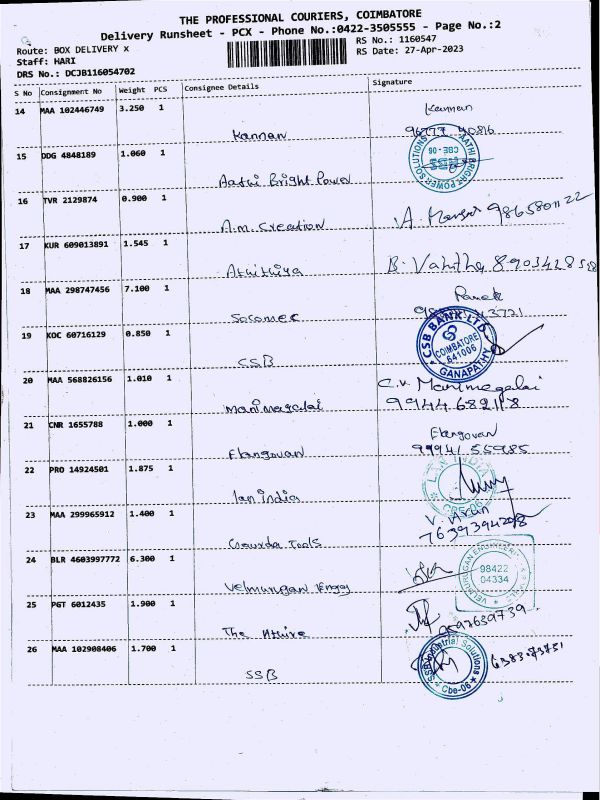 THE PROFESSIONAL COURIERS, COIMBATORE
Delivery Runsheet - PCX - Phone No.:0422-3505555 - Page No.:2
Route: BOX DELIVERY x
RS No.: 1160547
Staff: HARI
RS Date: 27-Apr-2023
DRS No.: DCJB116054702
S No Consignment No Weight PCS Consignee Details Signature
14 MAA 102446749 3.250 1 Kannan Kannan
15 DDG 4848189 1.060 1 Aathi Bright Power
AATHI BRIGHT POWER SOLUTIONS
CBE - 06
16 TVR 2129874 0.900 1 A.M. Creation
17 KUR 609013891 1.545 1 Athithiya
18 MAA 298747456 7.100 1
19 KOC 60716129 0.850 1 CSB
CSB BANK LTD
COIMBATORE
641006
GANAPATHY
20 MAA 568826156 1.010 1 Manimegalai C.V. Manimegalai
21 CNR 1655788 1.000 1 Elangovan Elangovan
22 PRO 14924501 1.875 1
23 MAA 299965912 1.400 1
7639394208
24 BLR 4603997772 6.300 1 Velmurugan Engg
VELMURUGAN ENGINEERING
98422
04334
25 PGT 6012435 1.900 1 The Attire
26 MAA 102908406 1.700 1 SSB
SSB Industrial Solutions
Cbe-06